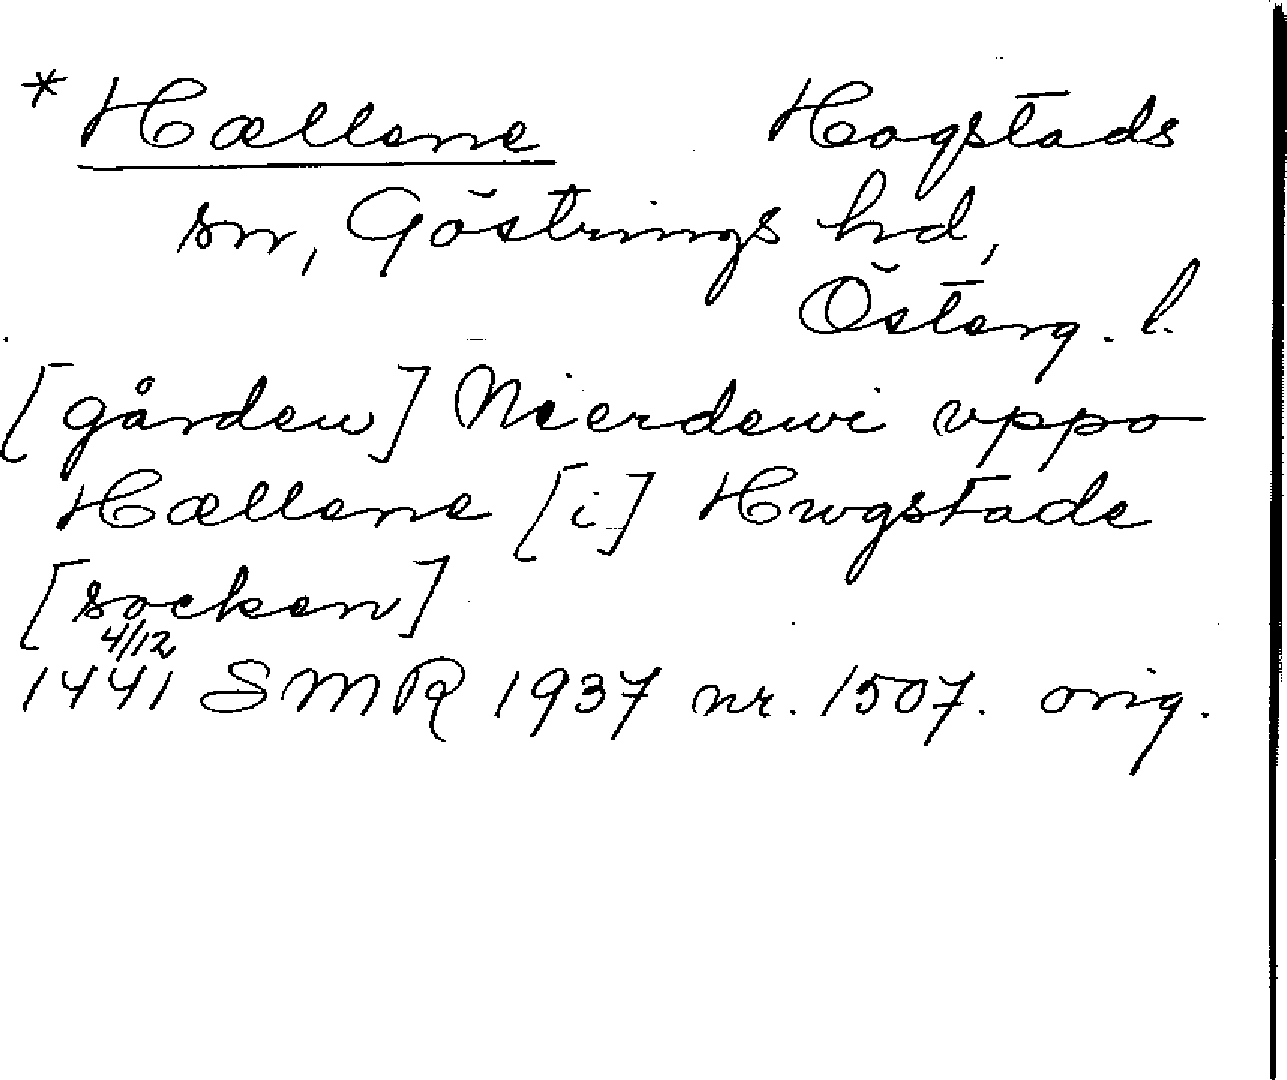 * Hællene Hogstads
sn, Göstrings hd,
Österg. l.
[gården] Nierdewi vppo
Hællene [i] Hwgstade
[socken]
4/12
1441 SMR 1937 nr. 1507. orig.